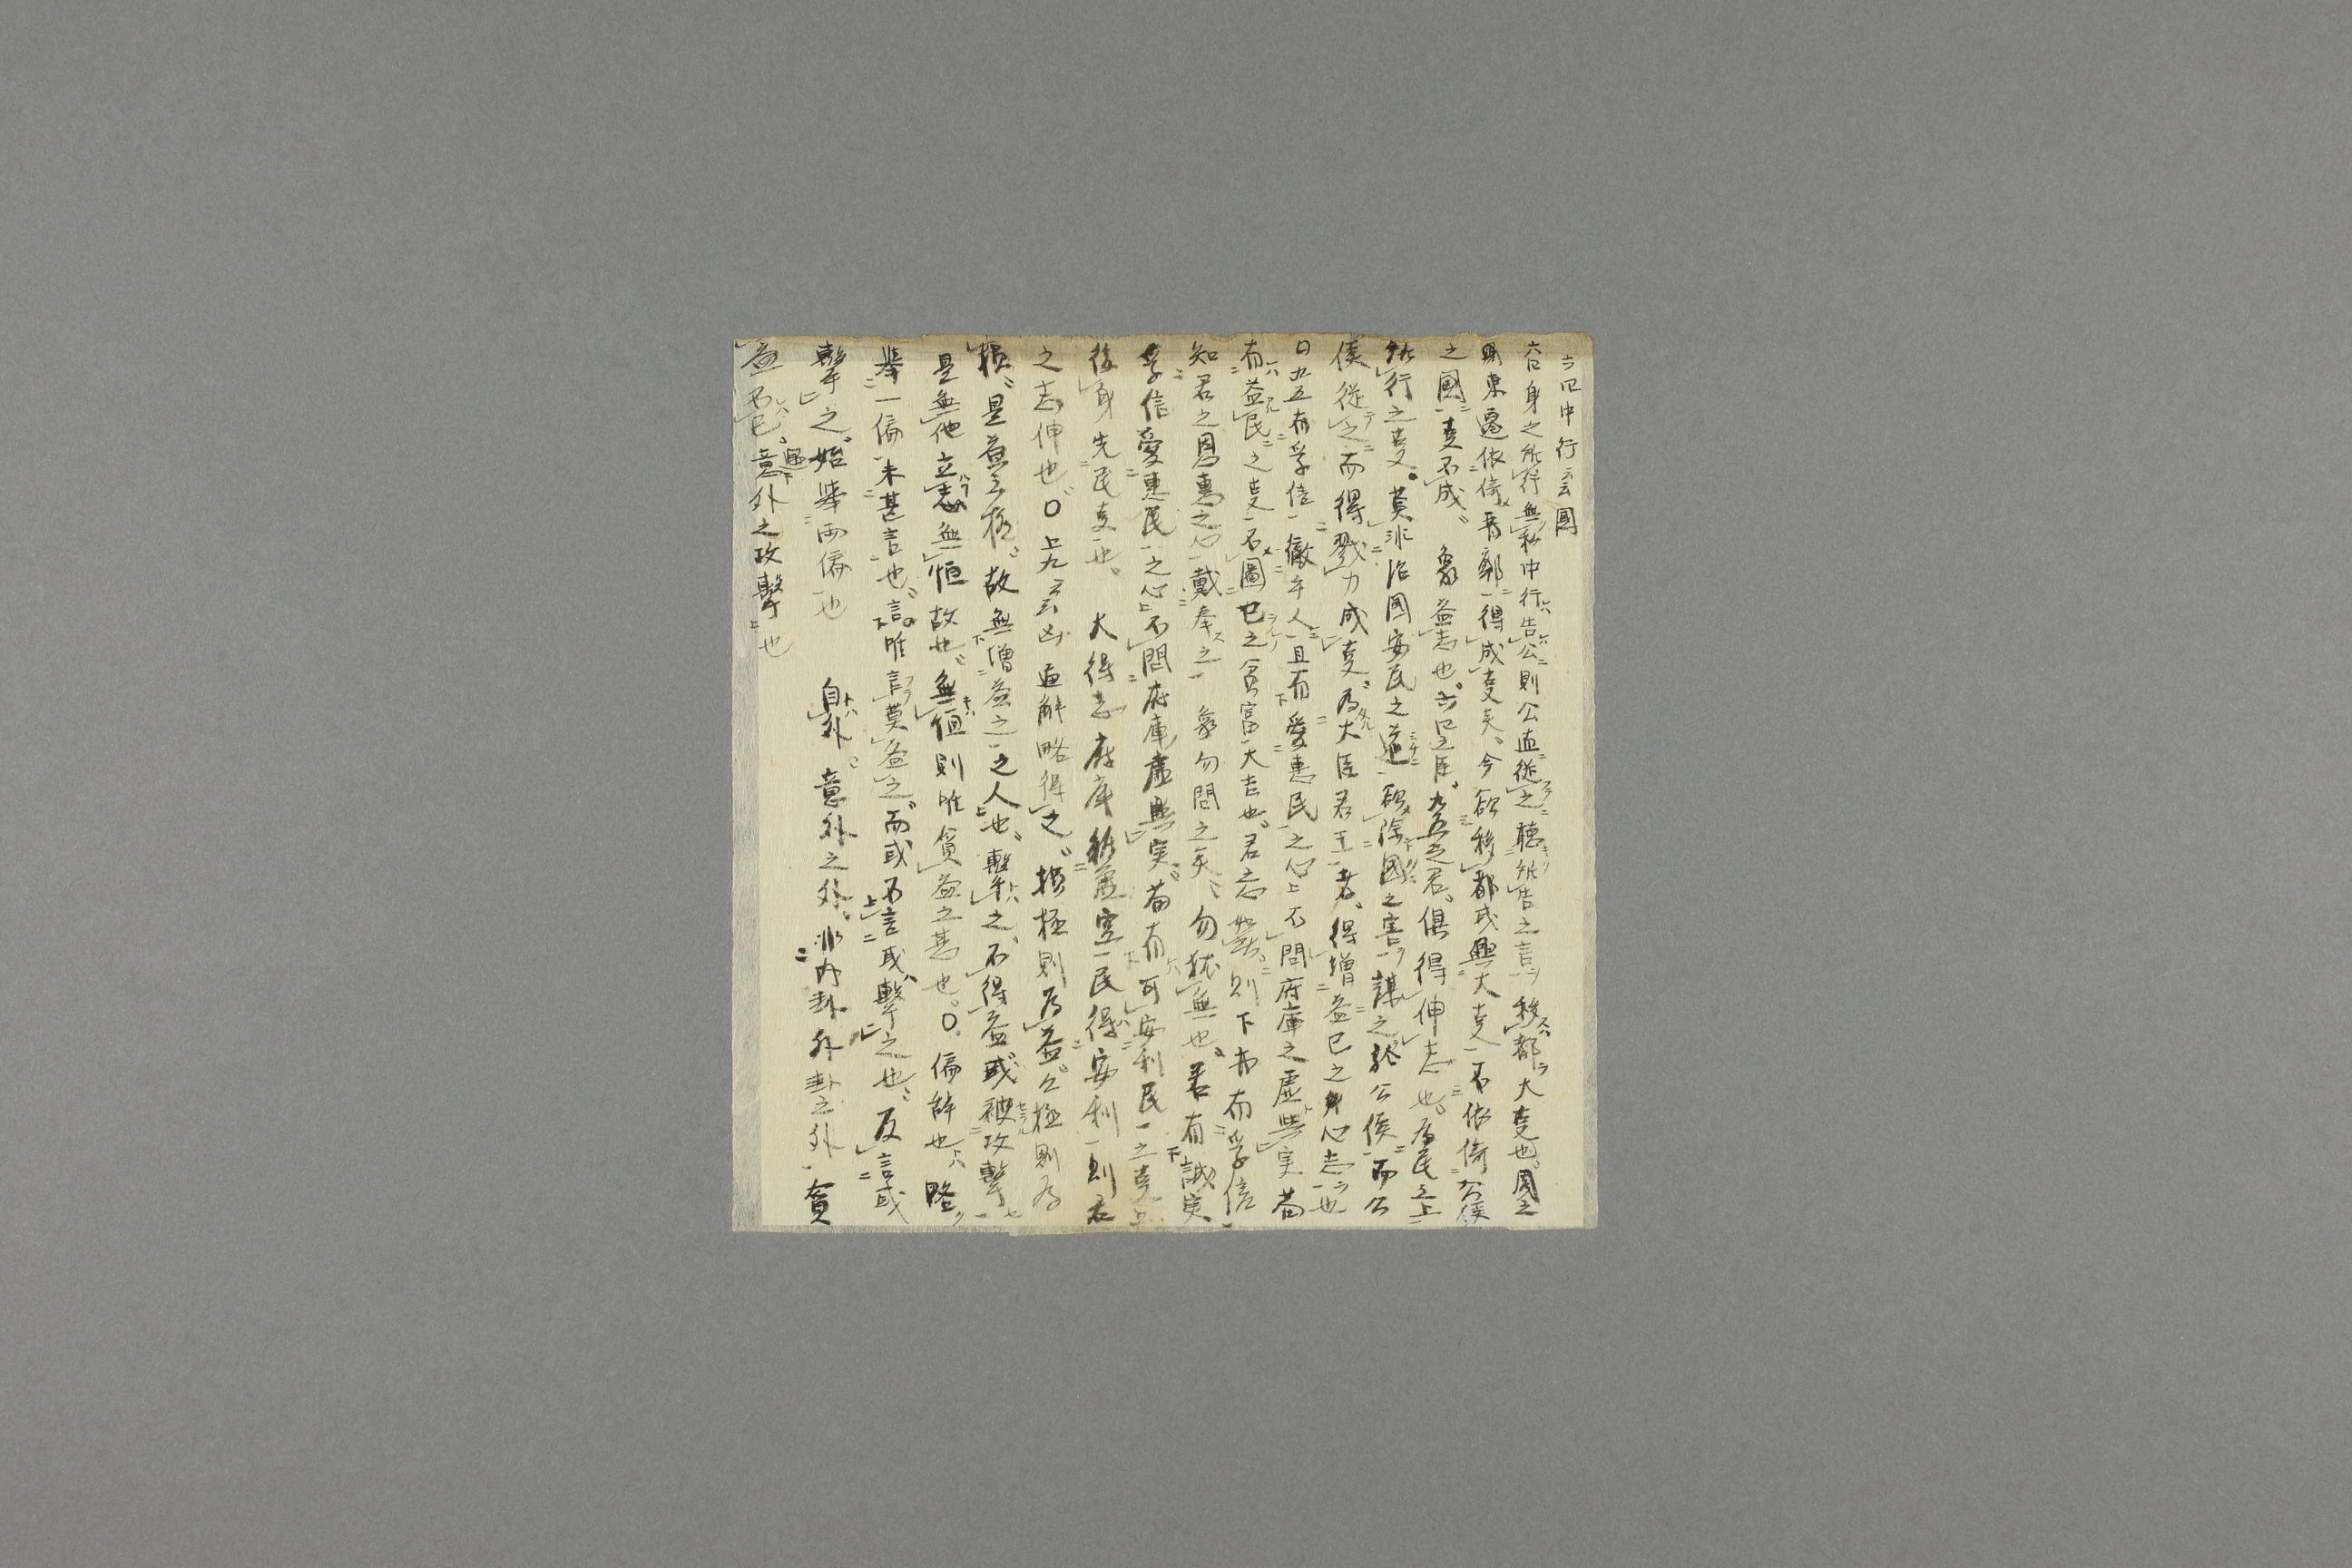 六四中行云國
六四身之所行無私中行告公則公直從之聽所告之言移都大事也周之
東遷依倚晋鄭得成事矣今欲移都或興大事不依倚公侯
之國事不成 象益志也六四之臣九五之君俱得伸志也為民之上
所行之事莫非治國安民之道欲除國之害謀之於公侯而公
侯從之而得戮力成事為大臣君王者得増益己之心志也
九五有孚信徹乎人且有愛惠民之心上不問府庫之虚與実苟
有益民之事不圖己之貧富大吉也君之則下亦有孚信
知君之恩惠之心戴奉之 象勿問之矣勿猶無也君有誠実
孚信愛惠民之心不問府庫虚與実苟有可安利民之事
後身先民事也 大得志府庫雖虚空民得安利則君
之志伸也○上九云凶通解略得之損極則為益益極則為
損是益之極故無増益之之人也擊之不得益或被攻擊
是無他立志無恒故也無恒則唯貪益之甚也○偏辞也略
舉一偏未甚言也言唯言莫益之而或不言或擊之也反言或
擊之始舉両偏也 自外意外之外非内卦外卦之外貪
益不已意外之攻擊也